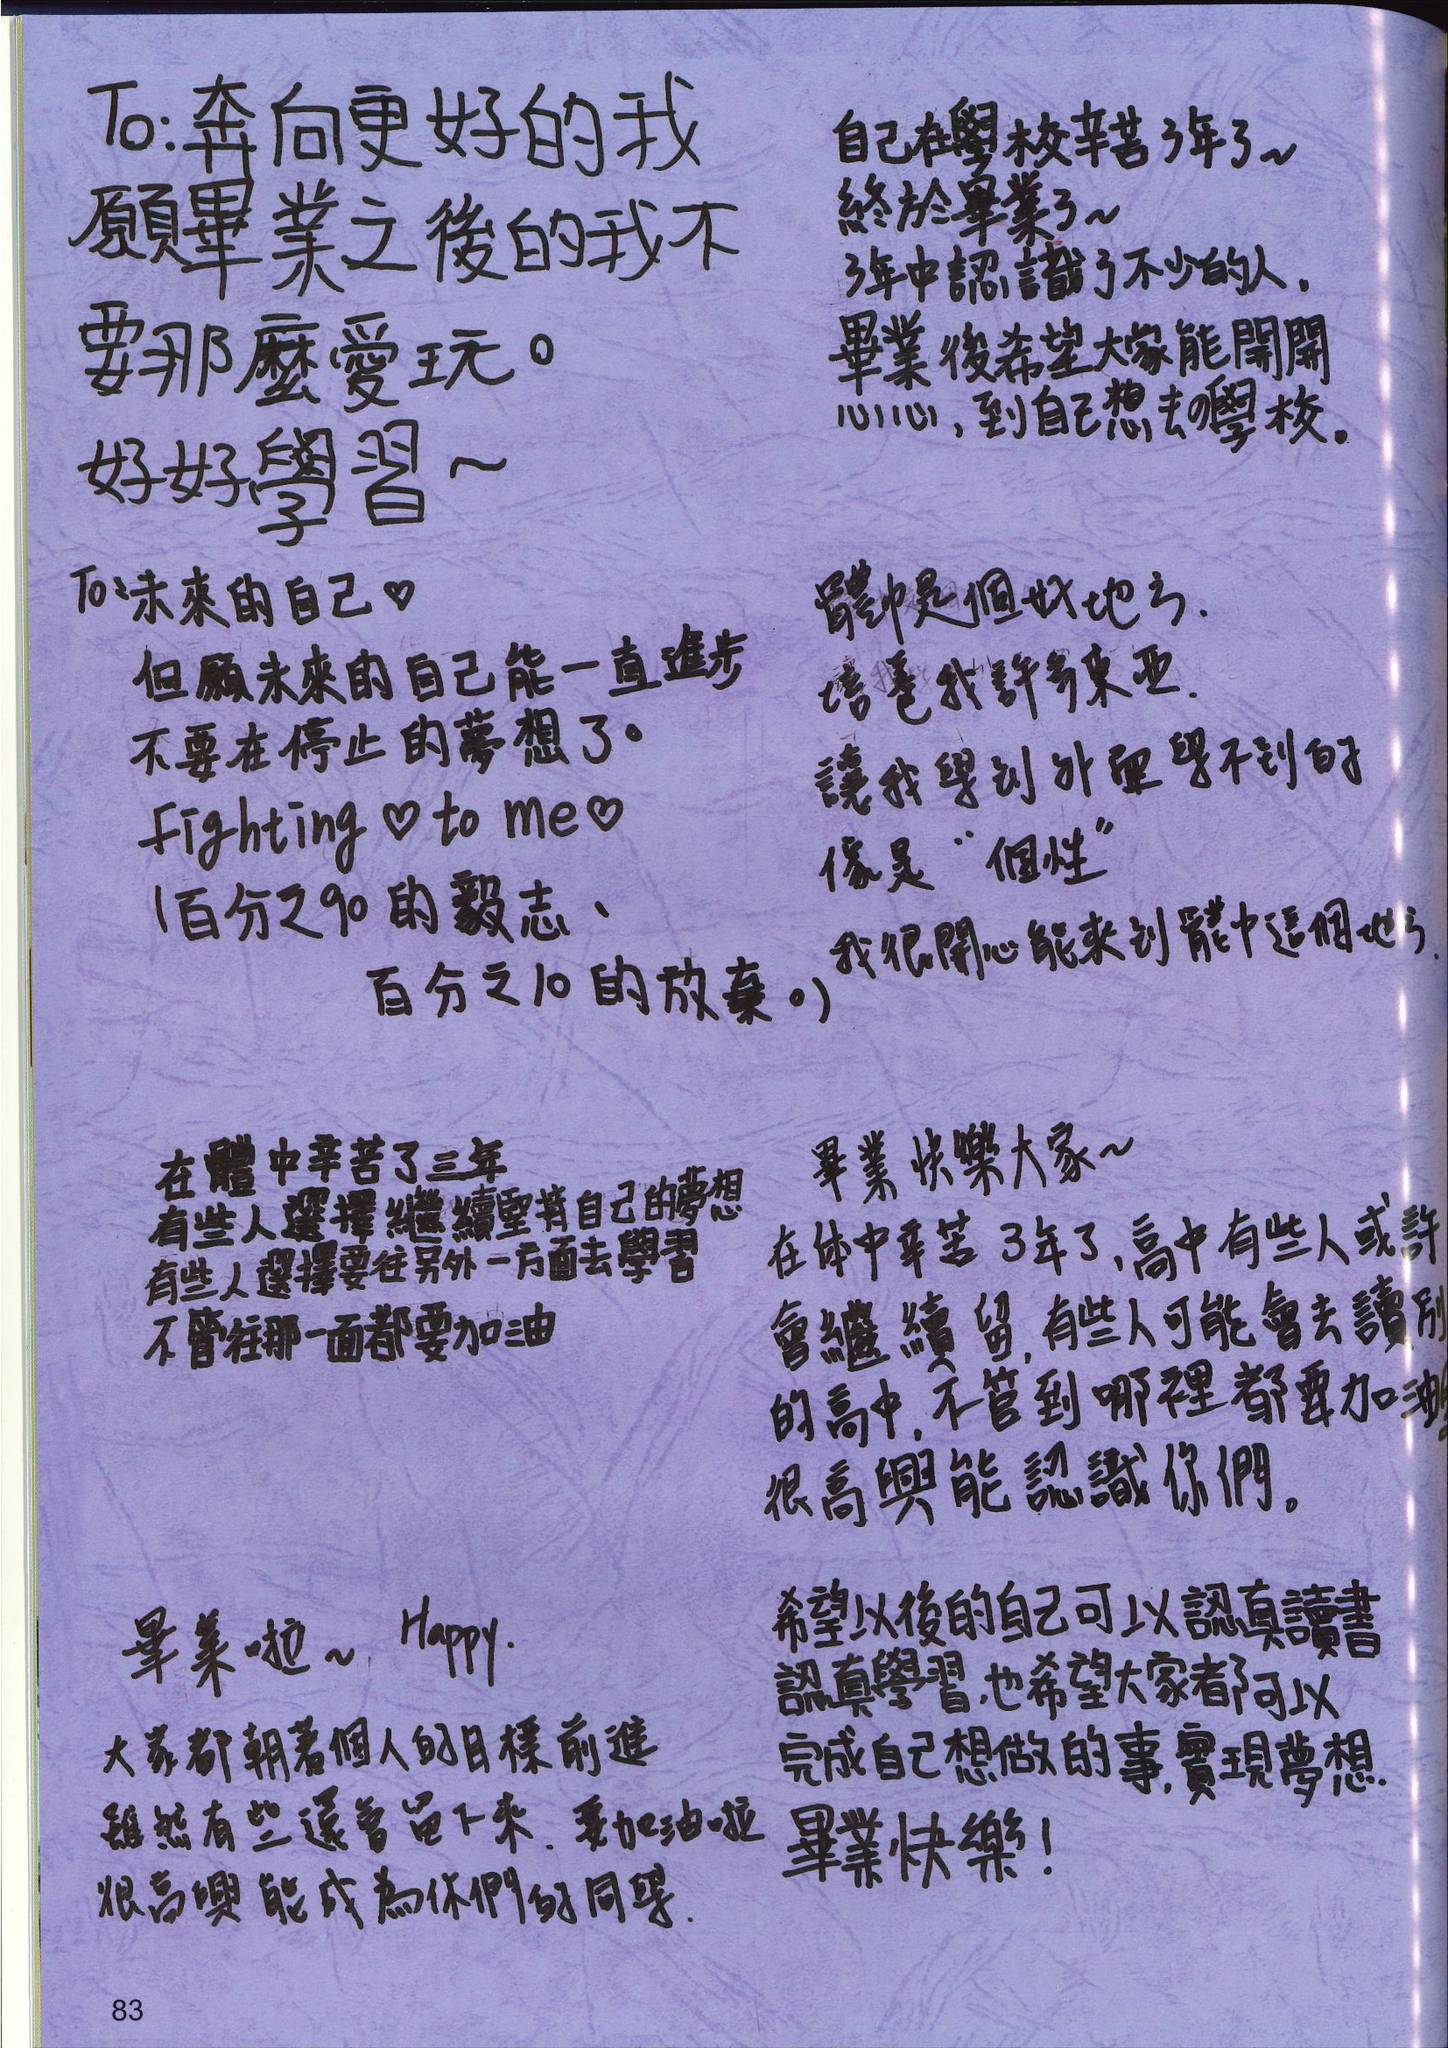 To:奔向更好的我
願畢業之後的我不
要那麼愛玩。
好好學習～
自己在學校辛苦3年了～
終於畢業了～
3年中認識了不少的人.
畢業後希望大家能開開
心心,到自己想去の學校。
To:未來的自己♡
但願未來的自己能一直進步
不要在停止的夢想了。
Fighting♡to me♡
(百分之90的毅志、
百分之10的放棄。)
體中是個好地方.
培養我許多東西.
讓我學到外面學不到的
像是"個性"
我很開心能來到體中這個地方.
在體中辛苦了三年
有些人選擇繼續堅持自己的夢想
有些人選擇要往另外一方面去學習
不管往那一面都要加油
畢業快樂大家～
在体中辛苦3年了,高中有些人或許
會繼續留,有些人可能會去讀別
的高中,不管到哪裡都要加油
很高興能認識你們。
畢業啦～ Happy.
大家都朝著個人的目標前進
雖然有些還會留下來.要加油啦
很高興能成為你們的同學.
希望以後的自己可以認真讀書
認真學習,也希望大家都可以
完成自己想做的事,實現夢想.
畢業快樂!
83